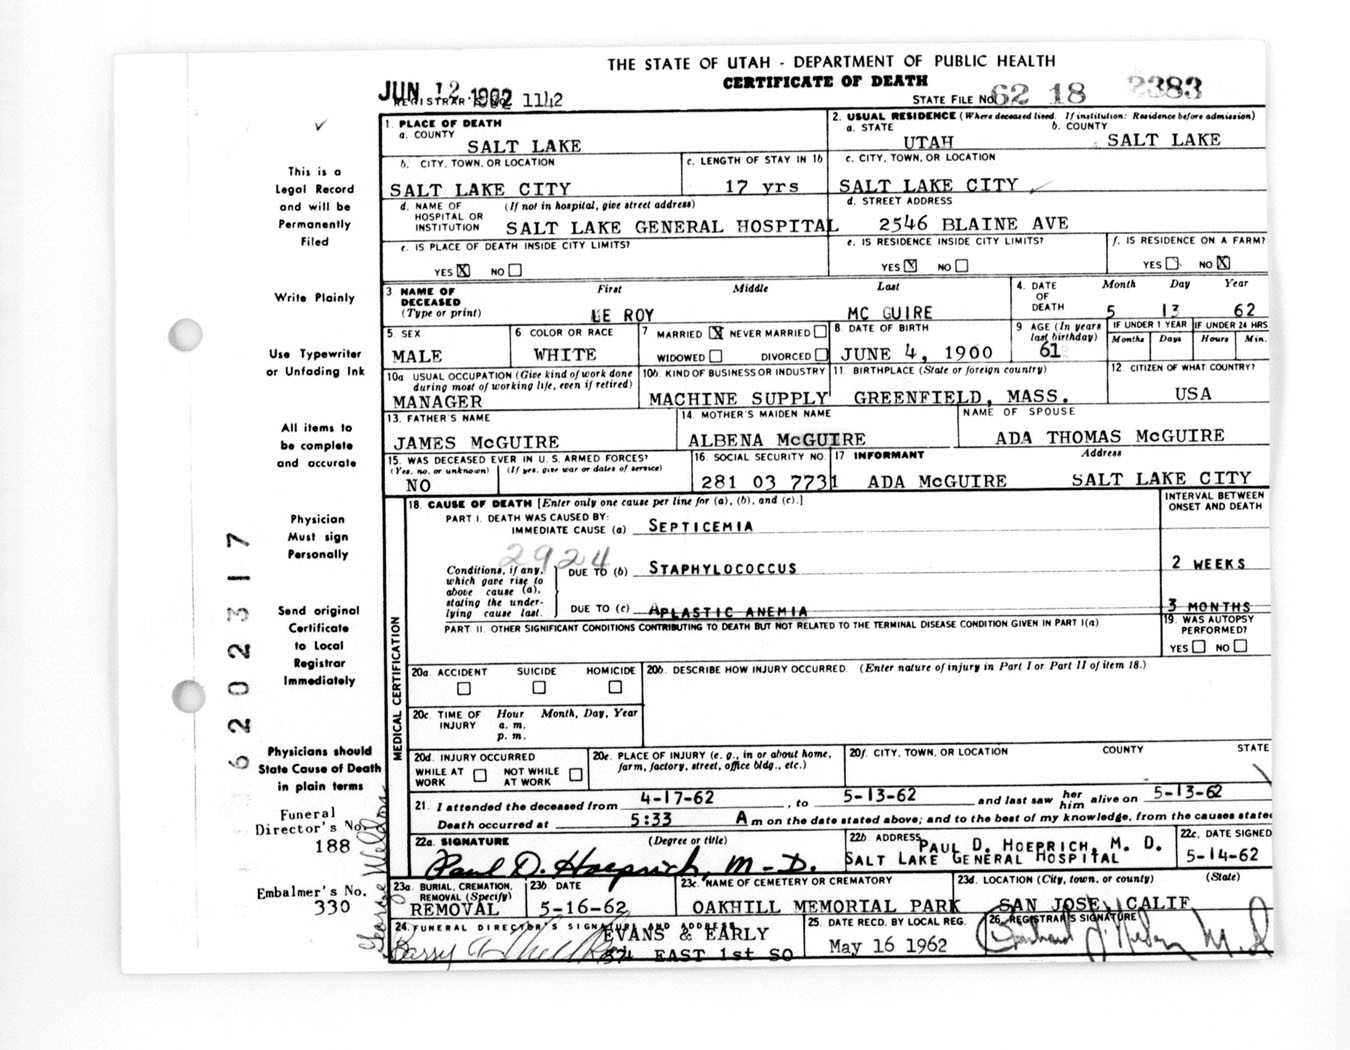 THE STATE OF UTAH - DEPARTMENT OF PUBLIC HEALTH
CERTIFICATE OF DEATH
JUN 12 1962
REGISTRAR'S NO. 1142
STATE FILE NO. 62 18 2383
1. PLACE OF DEATH
a. COUNTY
SALT LAKE
2. USUAL RESIDENCE (Where deceased lived. If institution: Residence before admission)
a. STATE b. COUNTY
UTAH SALT LAKE
b. CITY, TOWN, OR LOCATION
SALT LAKE CITY
c. LENGTH OF STAY IN 1b
17 yrs
c. CITY, TOWN, OR LOCATION
SALT LAKE CITY
d. NAME OF HOSPITAL OR INSTITUTION (If not in hospital, give street address)
SALT LAKE GENERAL HOSPITAL
d. STREET ADDRESS
2546 BLAINE AVE
e. IS PLACE OF DEATH INSIDE CITY LIMITS?
YES X NO
e. IS RESIDENCE INSIDE CITY LIMITS?
YES X NO
f. IS RESIDENCE ON A FARM?
YES NO X
3 NAME OF DECEASED (Type or print)
First Middle Last
LE ROY MC GUIRE
4. DATE OF DEATH
Month Day Year
5 13 62
5. SEX
MALE
6 COLOR OR RACE
WHITE
7 MARRIED X NEVER MARRIED
WIDOWED DIVORCED
8 DATE OF BIRTH
JUNE 4, 1900
9 AGE (In years last birthday)
61
IF UNDER 1 YEAR IF UNDER 24 HRS
Months Days Hours Min.
10a. USUAL OCCUPATION (Give kind of work done during most of working life, even if retired)
MANAGER
10b. KIND OF BUSINESS OR INDUSTRY
MACHINE SUPPLY
11. BIRTHPLACE (State or foreign country)
GREENFIELD, MASS.
12. CITIZEN OF WHAT COUNTRY?
USA
13. FATHER'S NAME
JAMES McGUIRE
14. MOTHER'S MAIDEN NAME
ALBENA McGUIRE
NAME OF SPOUSE
ADA THOMAS McGUIRE
15. WAS DECEASED EVER IN U. S. ARMED FORCES?
(Yes, no, or unknown) (If yes, give war or dates of service)
NO
16. SOCIAL SECURITY NO.
281 03 7731
17 INFORMANT Address
ADA McGUIRE SALT LAKE CITY
MEDICAL CERTIFICATION
18. CAUSE OF DEATH [Enter only one cause per line for (a), (b), and (c).]
INTERVAL BETWEEN ONSET AND DEATH
PART I. DEATH WAS CAUSED BY:
IMMEDIATE CAUSE (a) SEPTICEMIA
2924
Conditions, if any, which gave rise to above cause (a), stating the underlying cause last.
DUE TO (b) STAPHYLOCOCCUS 2 WEEKS
DUE TO (c) APLASTIC ANEMIA 3 MONTHS
PART II. OTHER SIGNIFICANT CONDITIONS CONTRIBUTING TO DEATH BUT NOT RELATED TO THE TERMINAL DISEASE CONDITION GIVEN IN PART I(a)
19. WAS AUTOPSY PERFORMED?
YES NO
20a. ACCIDENT SUICIDE HOMICIDE
20b. DESCRIBE HOW INJURY OCCURRED. (Enter nature of injury in Part I or Part II of item 18.)
20c. TIME OF INJURY Hour Month, Day, Year
a. m.
p. m.
20d. INJURY OCCURRED
WHILE AT WORK NOT WHILE AT WORK
20e. PLACE OF INJURY (e. g., in or about home, farm, factory, street, office bldg., etc.)
20f. CITY, TOWN, OR LOCATION COUNTY STATE
21. I attended the deceased from 4-17-62, to 5-13-62 and last saw her him alive on 5-13-62
Death occurred at 5:33 A m on the date stated above; and to the best of my knowledge, from the causes stated
22a. SIGNATURE (Degree or title)
Paul D. Hoeprich, M-D.
22b. ADDRESS
PAUL D. HOEPRICH, M. D.
SALT LAKE GENERAL HOSPITAL
22c. DATE SIGNED
5-14-62
23a. BURIAL, CREMATION, REMOVAL (Specify)
REMOVAL
23b. DATE
5-16-62
23c. NAME OF CEMETERY OR CREMATORY
OAKHILL MEMORIAL PARK
23d. LOCATION (City, town, or county) (State)
SAN JOSE, CALIF
24. FUNERAL DIRECTOR'S SIGNATURE AND ADDRESS
EVANS & EARLY
574 EAST 1st SO
25. DATE RECD. BY LOCAL REG.
May 16 1962
26. REGISTRAR'S SIGNATURE
This is a
Legal Record
and will be
Permanently
Filed
Write Plainly
Use Typewriter
or Unfading Ink
All items to
be complete
and accurate
Physician
Must sign
Personally
Send original
Certificate
to Local
Registrar
Immediately
Physicians should
State Cause of Death
in plain terms
Funeral
Director's No.
188
Embalmer's No.
330
George Weldon
62023 17